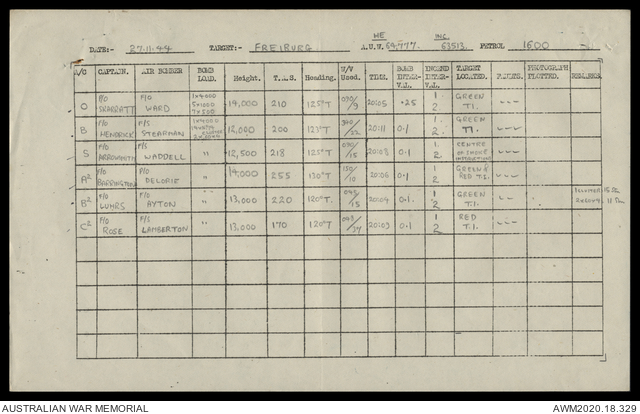 HE INC.
DATE:- 27.11.44 TARGET:- FREIBURG A.U.W. 64,777 63513 PETROL 1600
A/C CAPTAIN. AIR BOMBER BOMB LOAD. Height. T.A.S. Heading. W/V Used. TIME. BOMB INTER-VAL. INCEND INTER-VAL. TARGET LOCATED. FAULTS. PHOTOGRAPH PLOTTED. REMARKS.
O P/O SKARRATT F/O WARD 1x4000 5x1000 7x500 14,000 210 125°T 070/9 20:05 .25 1 2 GREEN T.I.
B P/O HENDRICK F/S STEARMAN 1x4000 12,000 200 123°T 22 20:11 0.1 1 2 GREEN T.I.
S P/O F/S WADDELL " 12,500 218 125°T 15 20:08 0.1 1 2 CENTRE OF SMOKE
A² F/O BARRINGTON F/O DELORIE " 14,000 255 130°T 130/10 20:06 0.1 1 2 GREEN & RED T.I.
B² F/O LUHRS F/S AYTON " 13,000 220 120°T. 15 20:04 0.1. 1 2 GREEN T.I.
C² F/O ROSE F/S LAMBERTON " 13,000 170 120°T 37 20:03 0.1 1 2 RED T.I.
AUSTRALIAN WAR MEMORIAL AWM2020.18.329